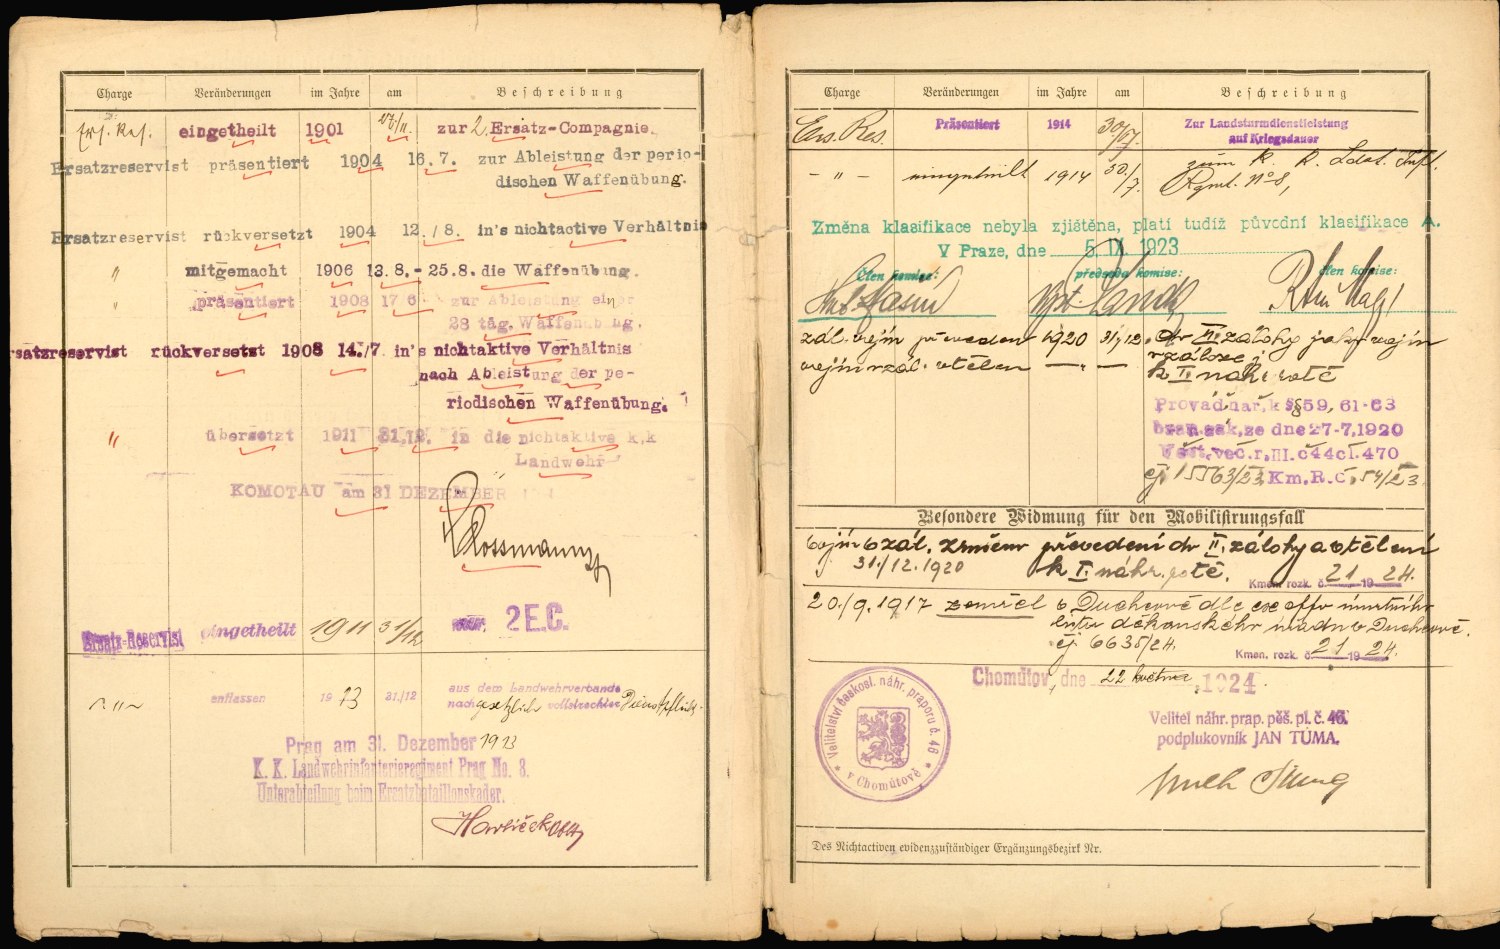 Charge Veränderungen im Jahre am Beschreibung
Ers. Res. eingetheilt 1901 27/11. zur 2. Ersatz-Compagnie.
Ersatzreservist präsentiert 1904 16. 7. zur Ableistung der perio-
dischen Waffenübung.
Ersatzreservist rückversetzt 1904 12./8. in's nichtactive Verhältnis
" mitgemacht 1906 13.8.-25.8. die Waffenübung.
" präsentiert 1908 17 6 zur Ableistung einer
28 täg. Waffenübung.
rsatzreservist rückversetzt 1908 14./7. in's nichtaktive Verhältnis
nach Ableistung der pe-
riodischen Waffenübung.
" übersetzt 1911 31.12. in die nichtaktive k.k
Landwehr
KOMOTAU am 31 DEZEMBER
Ersatz-Reservist eingetheilt 1911 31/12 2 E.C.
" entlassen 1913 31./12 aus dem Landwehrverbande
nach gesetzlich vollstreckter Dienstpflicht.
Prag am 31. Dezember 1913
K. K. Landwehrinfanterieregiment Prag No. 8.
Unterabteilung beim Ersatzbataillonskader.
Havlíček Oblt
Charge Veränderungen im Jahre am Beschreibung
Ers. Res. Präsentiert 1914 30/7. Zur Landsturmdienstleistung
auf Kriegsdauer
- " - eingeteilt 1914 30/7. zum k. k. Ldst. Inft.
Rgmt. No 8,
Změna klasifikace nebyla zjištěna, platí tudíž původní klasifikace A.
V Praze, dne 5. IX 1923
Člen komise: předseda komise: člen komise:
zál. vojín převeden 1920 31/12. do II. zálohy jako vojín
v záloze
vojín v zál. vtělen —„— k I. náhr. rotě
Prováď.nař. k §§59, 61-63
bran.zák. ze dne 27-7.1920
Věst. věc. r. III. č 44 čl. 470
čj 15563/23 Km. R. č. 54/23
Besondere Widmung für den Mobilisirungsfall
vojín v zál. zrušeno převedení do II. zálohy a vtělení
31./12. 1920 k I. náhr. rotě. Kmen. rozk. č. 21 1924.
20./9. 1917 zemřel v Duchcově dle ex offo úmrtního
listu děkanského úřadu v Duchcově.
čj 6635/24. Kmen. rozk. č. 21 1924.
Chomutov, dne 22 května 1924.
Velitelství českosl. náhr. praporu č. 46
v Chomútově
Velitel náhr. prap. pěš. pl. č. 46.
podplukovník JAN TŮMA.
Des Nichtactiven evidenzzuständiger Ergänzungsbezirk Nr.